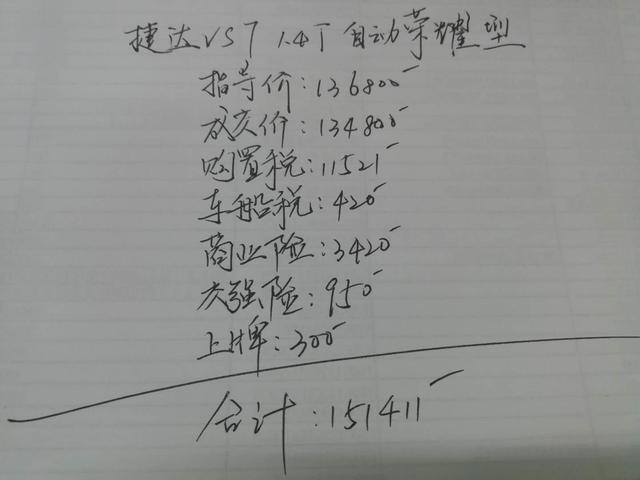 捷达VS7 1.4T 自动荣耀型
指导价:136800
成交价:134800
购置税:11521
车船税:420
商业险:3420
交强险:950
上牌:300
合计:151411